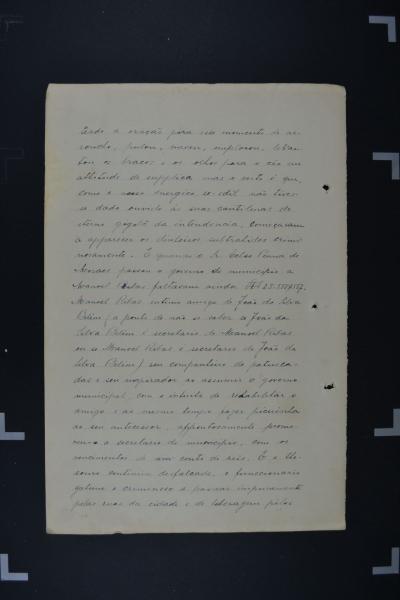 tendo a oração para seu momento de ar-
roucho, pulou, moveu, implorou, levan-
tou os braços e os olhos para o céu em
attitude de supplica mas o certo é que,
como o nosso energico ex-edil não tives-
se dado ouvido ás suas cantilenas de
eterno da intendencia, começaram
a apparecer os dinheiros subtrahidos crimi
nosamente. E quando o Sr. Celso Penna de
Moraes passou o governo do municipio a
Manoel Ribas faltavam ainda
Manoel Ribas intimo amigo de João da Silva
Belem (a ponto de não se saber se João da
Silva Belem é secretario de Manoel Ribas
ou se Manoel Ribas é secretario de João da
Silva Belem) seu companheiro de patusca-
das e seu inspirador ao assumir o governo
municipal, com o intuito de rehabilitar o
amigo e ao mesmo tempo fazer picuinha
ao seu antecessor, apparatosamente promo-
veu-o a secretario do municipio, com os
vencimentos de um conto de reis. E o the-
souro continua desfalcado, o funccionario
gatuno e criminoso a passear impunemente
pelas ruas da cidade e de pelos